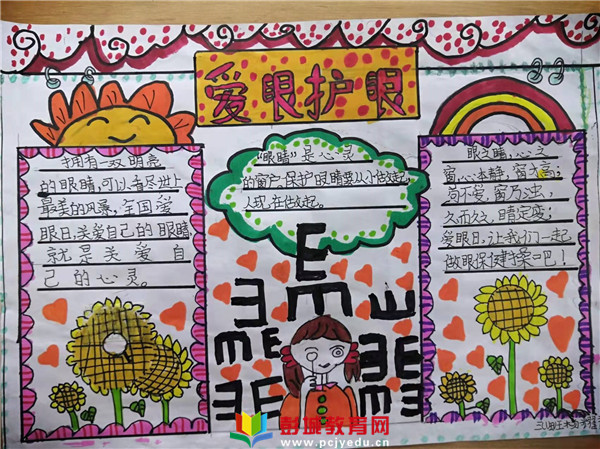 爱眼护眼
拥有一双明亮
的眼睛,可以看尽世上
最美的风景,全国爱
眼日,关爱自己的眼睛
就是关爱自
己的心灵。
"眼睛"是心灵
的窗户,保护眼睛要从小做起,
从现在做起。
眼之睛,心之
窗,心本静,窗亦亮;
苟不爱,窗乃浊,
久而久之,睛定疲;
爱眼日,让我们一起
做眼保健操吧!
E
E
E
E
E
m
E
E
E
E
E
m
彭城教育网
www.pcjyedu.cn